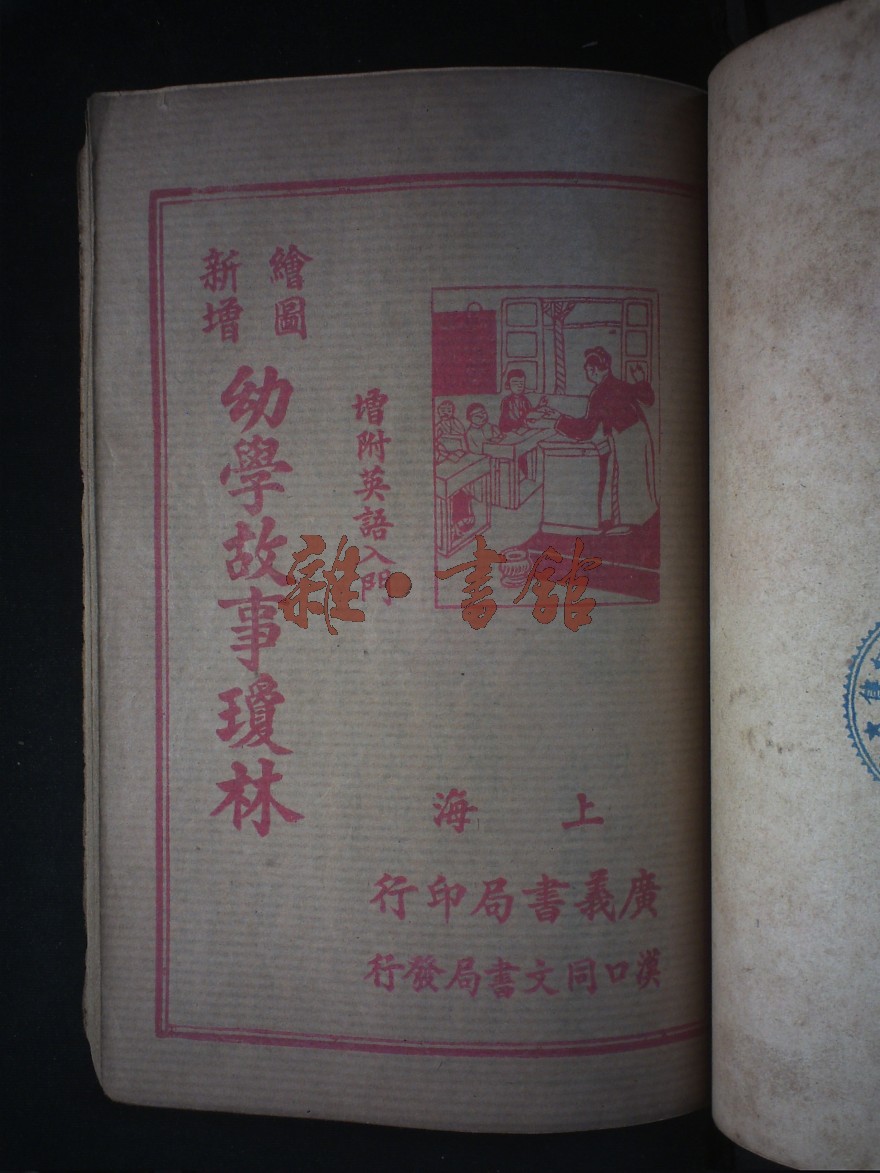 繪圖
新增
幼學故事瓊林
增附英語入門
上海
廣義書局印行
漢口同文書局發行
雜·書館